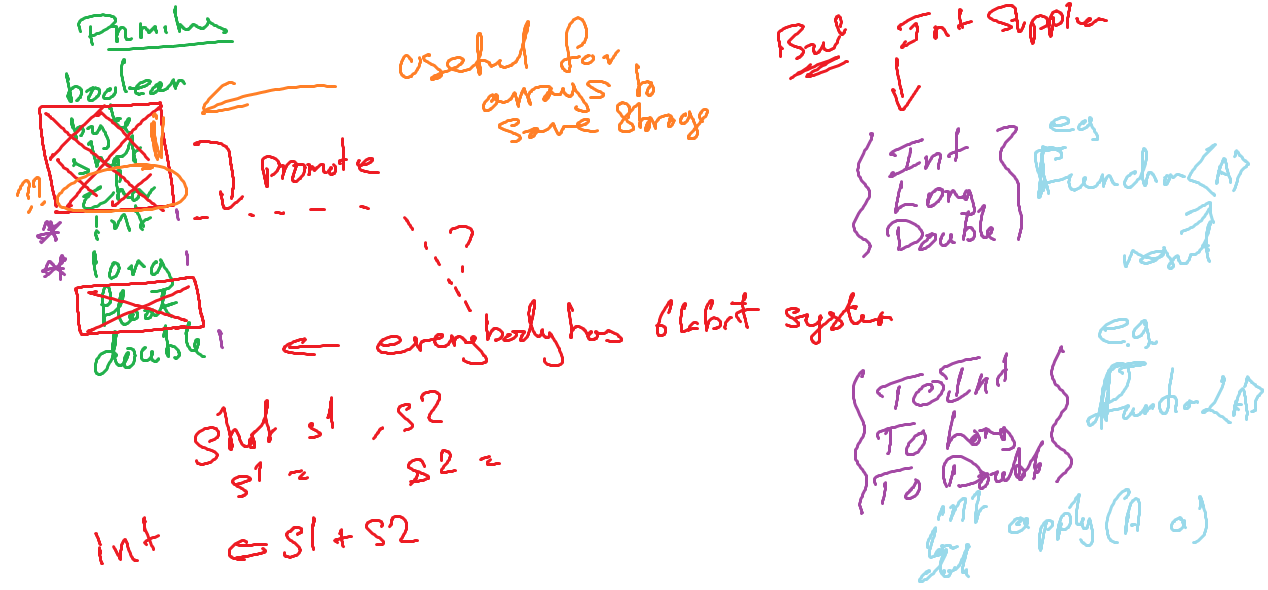 Primitives
boolean
byte
short
char
??
int
*
long
*
float
double
useful for
arrays to
save storage
promote
?
everybody has 64bit system
Short s1 , s2
s1 = s2 =
int ⇐ s1 + s2
But Int Supplier
{ Int
Long
Double }
eg
Function<A>
result
{ ToInt
To Long
To Double }
e.g
Function<A>
int apply (A a)